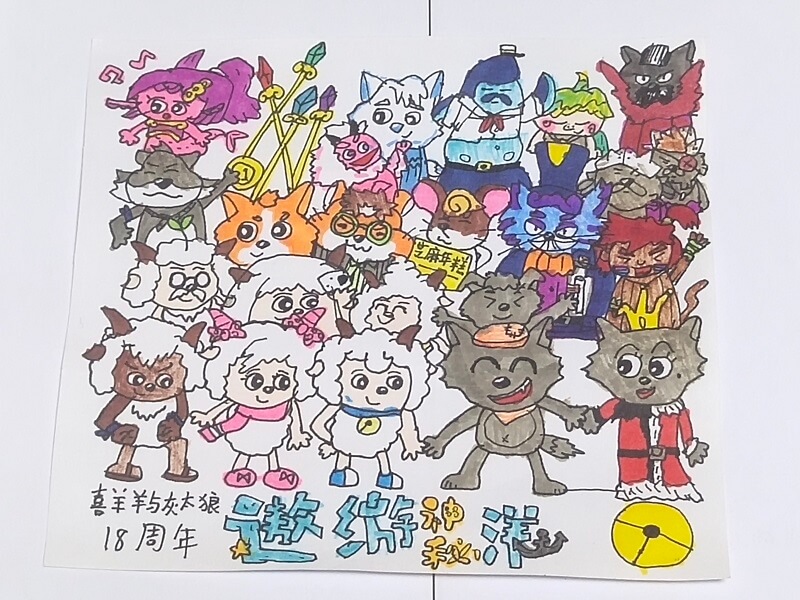 1
芝麻年糕
喜羊羊与灰太狼
18周年
遨游神秘洋